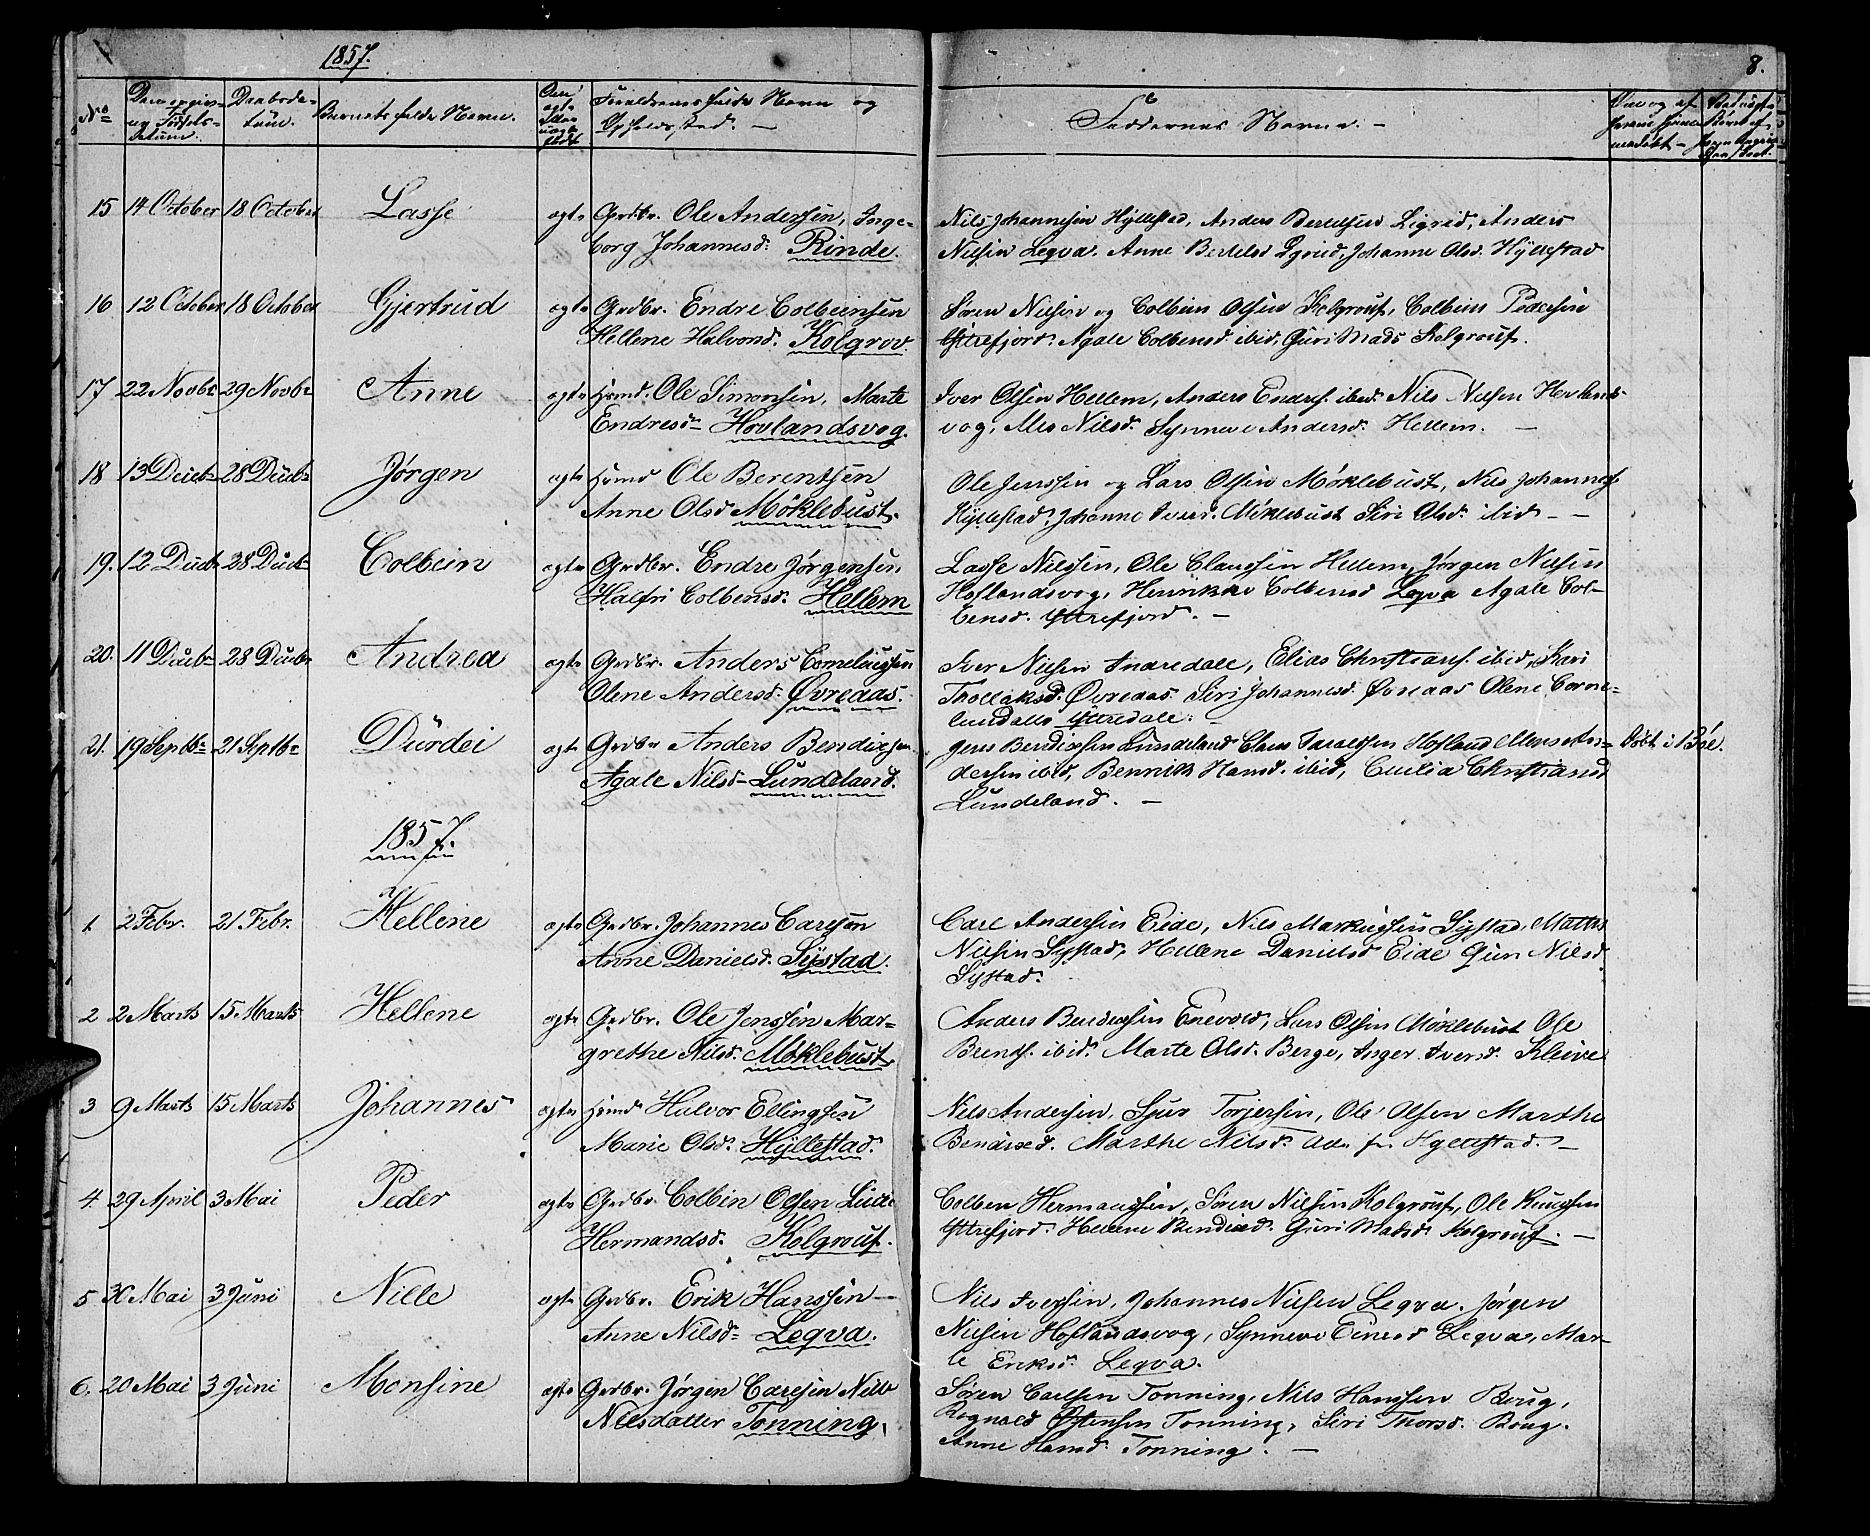 1857.
8.
No
Daabsda-
tum.
Barnets fulde Navn.
Forældrenes fulde Navn og
Opholdssted. —
Faddernes Navne. —
15 14 October 18 October Lasse ægte Grdbr. Ole Anderssen, Inge-
borg Johannesd: Rinde.
Nils Johannesen Hyllestad, Anders Bertelsen Sigrid, Anders
Nilsen Leqva. Anne Bertelsd Johanne Olsd. Hyllestad
16 12 October 18 October Gjertrud ægte Grdbr. Endre Colbeensen
Hellene Halvorsd. Kolgrov.
Søren Nilsen og Colbein Olsen Kolgrouf, Colbein Pedersen
Yttrefjord. Agate Colbensd. ibid, Guri Mads Kolgrouf.
17 22 Novbr 29 Novbr Anne ægte Hmd. Ole Simonsen, Marte
Endresd. Hovlandsvog.
Iver Olsen Hellem, Anders Endres. ibid. Nils Nilsen Hovlands-
vog, Nilsd. Synneve Andersd. Hellem. —
18 13 Decbr 28 Decbr Jørgen ægte Hmd Ole Berentsen
Anne Olsd Møklebust.
Ole Jenssen og Lars Olsen Møklebust, Nils Johannes.
Hyllestad, Johanne Ivers. Møklebust Siri Olsd. ibid — —
19. 12 Decbr 28 Decbr Colbein ægte Grdbr. Endre Jørgensen
Halfri Colbensd. Hellem
Lasse Nilssen, Ole Claussen Hellem, Jørgen Nilsen
Hoflandsvog, Henrikke Colbensd Leqva Agate Col-
bensd. Yttrefjord. —
20. 11 Decbr 28 Decbr Andrea ægte Grdbr. Anders Corneliussen
Olene Andersd. Øvreaas.
Iver Nilsen Indredale, Elias Christians. ibid, Kari
Thollaksd. Øvreaas Siri Johannesd. Øvreaas Olene Corne-
Yttredale.
21. 19 Septbr 21 Septbr Dürdei ægte Grdbr Anders Bendixsen
Agate Nilsd Lundeland.
Bendixsen Lundeland Claus Haraldsen Hofland Mons An-
dersen ibid, Hansd. ibid, Cecilia Christiansd
Lundeland. —
Døbt i Bøe.
1857.
1. 2 Febr. 21 Febr. Hellene ægte Grdbr. Johannes Carlsen
Anne Danielsd. Systad.
Carl Andersen Eide, Nils Markussen Systad, Mathis
Nilsen Systad, Hellene Danielsd Eide Guri Nilsd
Systad.
2 2 Marts 15 Marts Hellene ægte Grdbr. Ole Jenssen Mar-
grethe Nilsd. Møklebust.
Anders Bendixsen Enevold, Lars Olsen Møklebust Ole
Brents. ibid. Marte Olsd. Berge, Inger Iversd. Kleive
3 9 Marts 15 Marts Johannes ægte Hmd Halvor Ellingsen
Marie Olsd. Hyllestad.
Nils Andersen, Sjur Torjersen, Ole Olsen Marthe
Bendixd. Marthe Nilsd. Alle fra Hyllestad. —
4. 29 April 3 Mai Peder ægte Grdbr. Colbin Olsen
Hermandsd. Kolgrouf.
Colben Hermanssen, Søren Nilsen Kolgrouf, Ole Knussen
Yttrefjord. Hellene Bendixd. Guri Madsd. Kolgrouf. —
5 30 Mai 3 Juni Nille ægte Grdbr. Erik Hanssen —
Anne Nilsd. Leqva.
Nils Iversen, Johannes Nilsen Leqva. Jørgen
Nilsen Hoflandsvog, Synneve Einesd Leqva, Mar-
te Eriksd. Leqva.
6. 20 Mai 3 Juni Monsine ægte Grdbr. Jørgen Carlsen Nille
Nilsdatter Tonning.
Søren Carlsen Tonning, Nils Hanssen Boug,
Rognald Østensen Tonning, Siri Thorsd. Boug.
Anne Hansd. Tonning. —